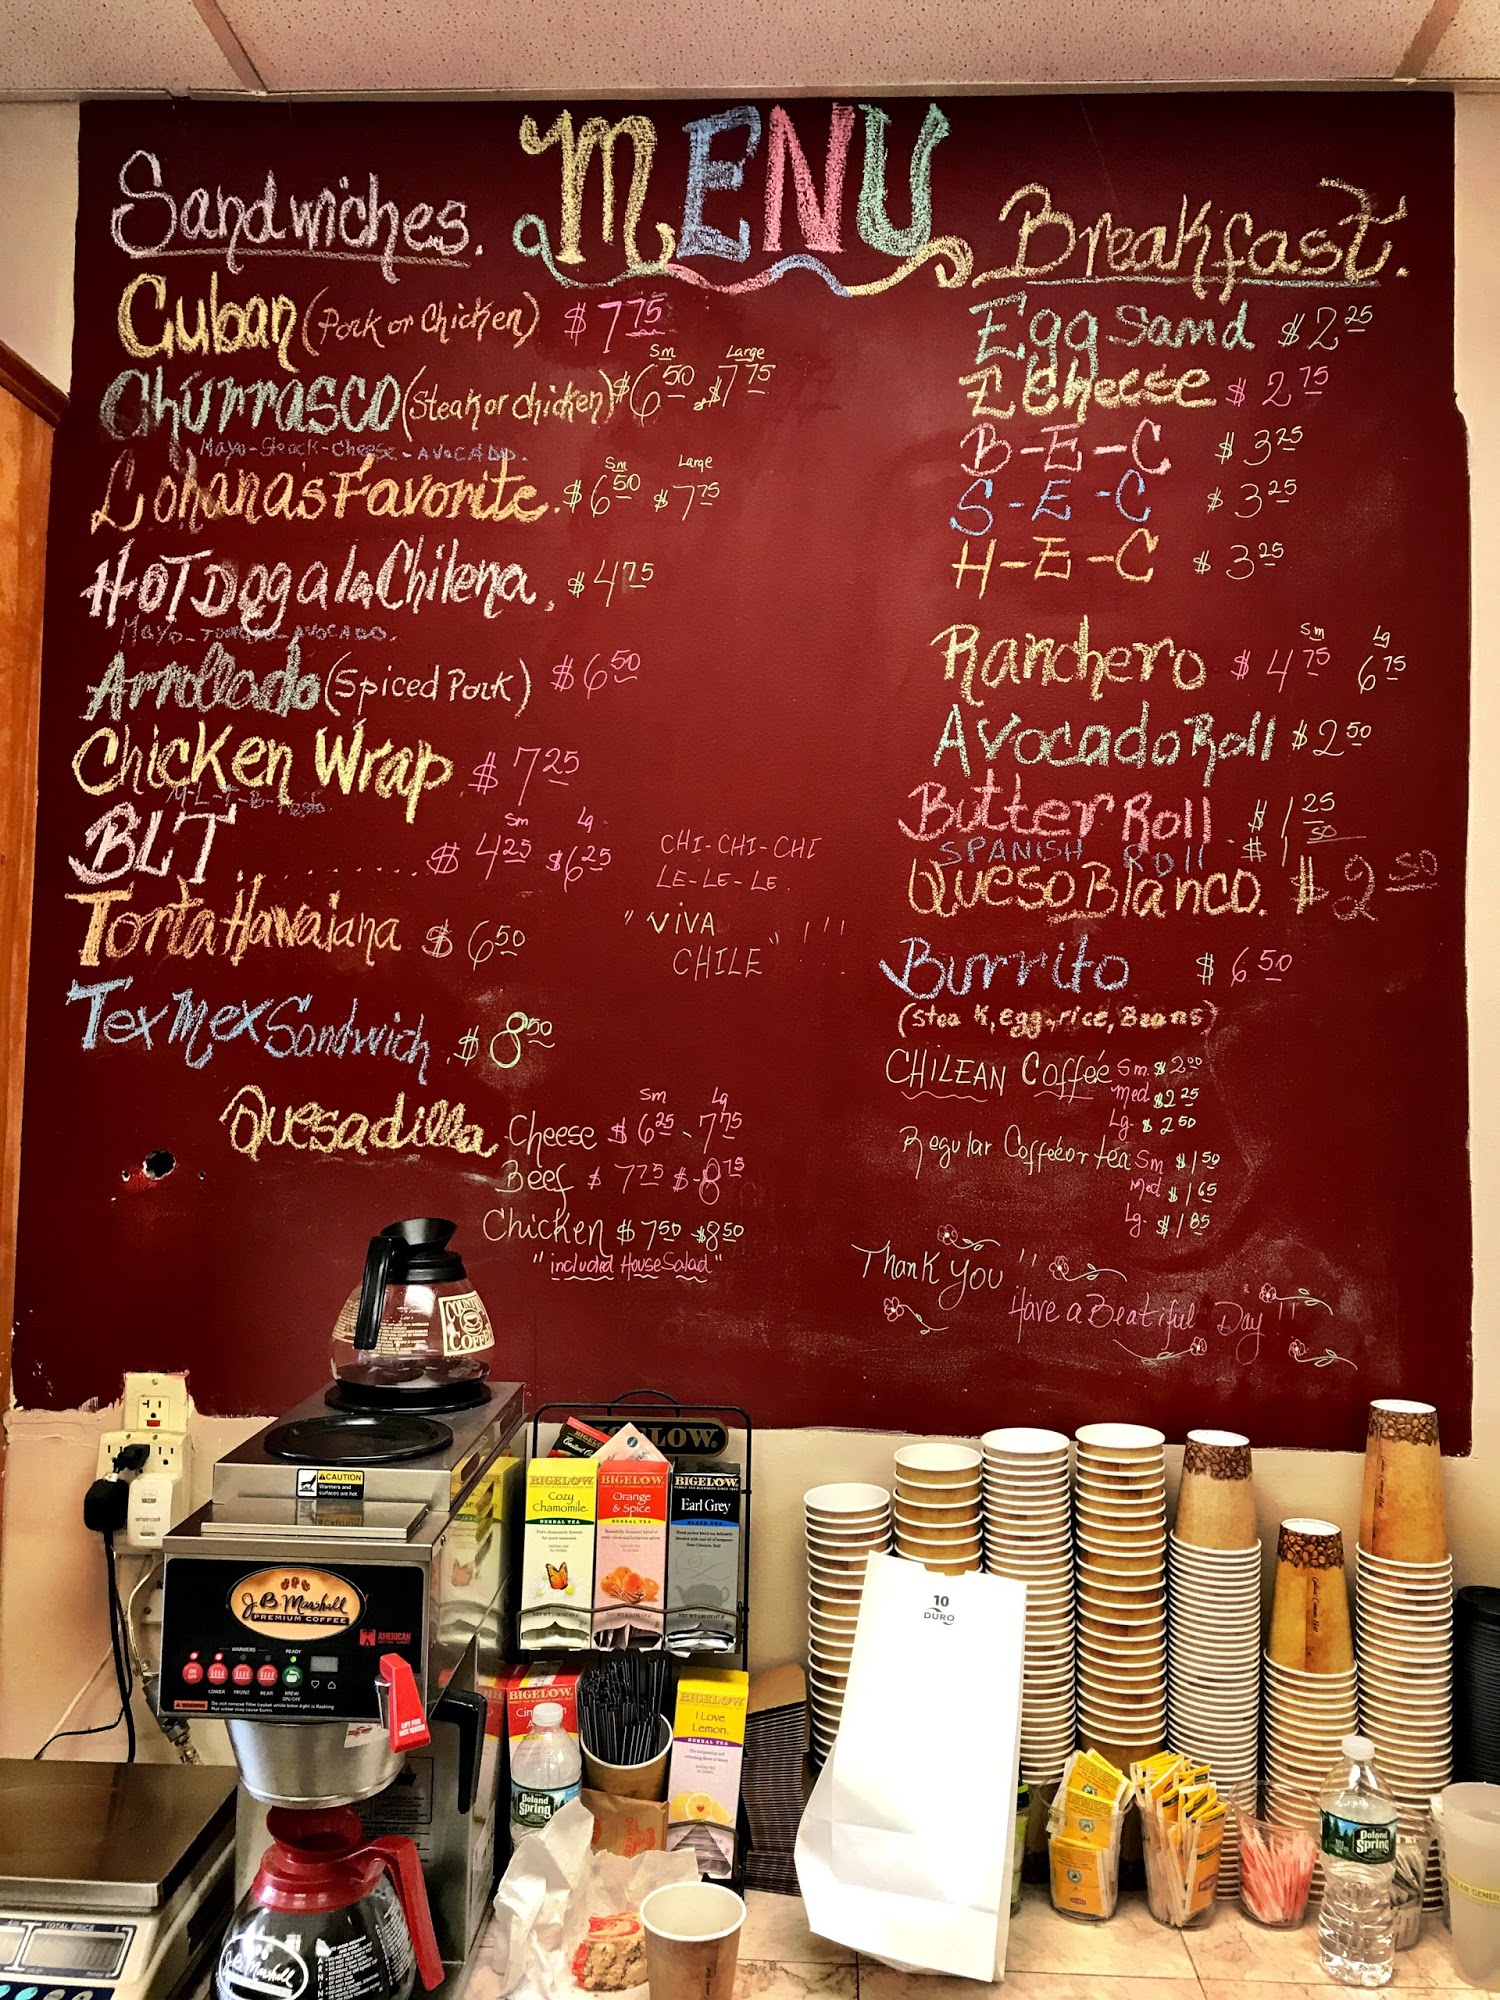 MENU
Sandwiches.
Cuban (Pork or Chicken) $7.75
Sm Large
Churrasco (Steak or chicken) $6.50 $7.75
Sm Large
Lohana's Favorite. $6.50 $7.75
Hot Dog a la Chilena. $4.75
Arrollado (Spiced Pork) $6.50
Chicken Wrap. $7.25
Sm Lg
BLT......... $4.25 $6.25
Torta Hawaiana $6.50
Tex Mex Sandwich. $8.50
Sm Lg
Quesadilla Cheese $6.25 7.75
Beef $7.75 $8.75
Chicken $7.50 $8.50
"included House Salad"
CHI-CHI-CHI
LE-LE-LE.
"VIVA
CHILE"!!!
Breakfast.
Egg Sand $2.25
E Cheese $2.75
B-E-C $3.25
S-E-C $3.25
H-E-C $3.25
Sm Lg
Ranchero $4.75 6.75
Avocado Roll $2.50
Butter Roll $1.25
SPANISH Roll $1.50
Queso Blanco. $2.50
Burrito $6.50
(steak, egg, rice, Beans)
CHILEAN Coffée Sm. $2.00
Med $2.25
Lg. $2.50
Regular Coffée or tea Sm $1.50
Med $1.65
Lg. $1.85
Thank you"
Have a Beatiful Day!!
COUNTRY
COFFEE
CAUTION
Warmers and
surfaces are hot
J.B. Marshall
PREMIUM COFFEE
AMERICAN
WARMERS READY
ON OFF LOWER FRONT REAR BREW ON/OFF
WARNING
LIFT FOR
HOT WATER
TOTAL PRICE
J.B. Marshall
BIGELOW
BIGELOW
Cozy
Chamomile
HERBAL TEA
BIGELOW
Orange
& Spice
HERBAL TEA
BIGELOW
Earl Grey
BLACK TEA
BIGELOW
I Love
Lemon
HERBAL TEA
Poland
Spring
10
DURO
Poland
Spring